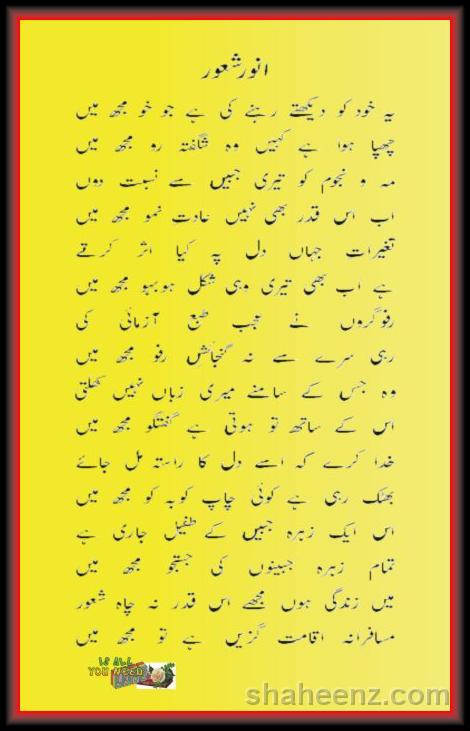 انور شعور
یہ خود کو دیکھتے رہنے کی ہے جو خو مجھ میں
چھپا ہوا ہے کہیں وہ شگفتہ رو مجھ میں
مہ و نجوم کو تیری جبیں سے نسبت دوں
اب اس قدر بھی نہیں عادتِ نمو مجھ میں
تغیراتِ جہاں دل پہ کیا اثر کرتے
ہے اب بھی تیری وہی شکل ہو بہو مجھ میں
رفوگروں نے عجب طبع آزمائی کی
رہی سرے سے نہ گنجائشِ رفو مجھ میں
وہ جس کے سامنے میری زباں نہیں کھلتی
اس کے ساتھ تو ہوتی ہے گفتگو مجھ میں
خدا کرے کہ اسے دل کا راستہ مل جائے
بھٹک رہی ہے کوئی چاپ کو بہ کو مجھ میں
اس ایک زہرہ جبیں کے طفیل جاری ہے
تمام زہرہ جبینوں کی جستجو مجھ میں
میں زندگی ہوں مجھے اس قدر نہ چاہ شعور
مسافرانہ اقامت گزیں ہے تو مجھ میں
IS ALL
YOU NEED
shaheenz.com